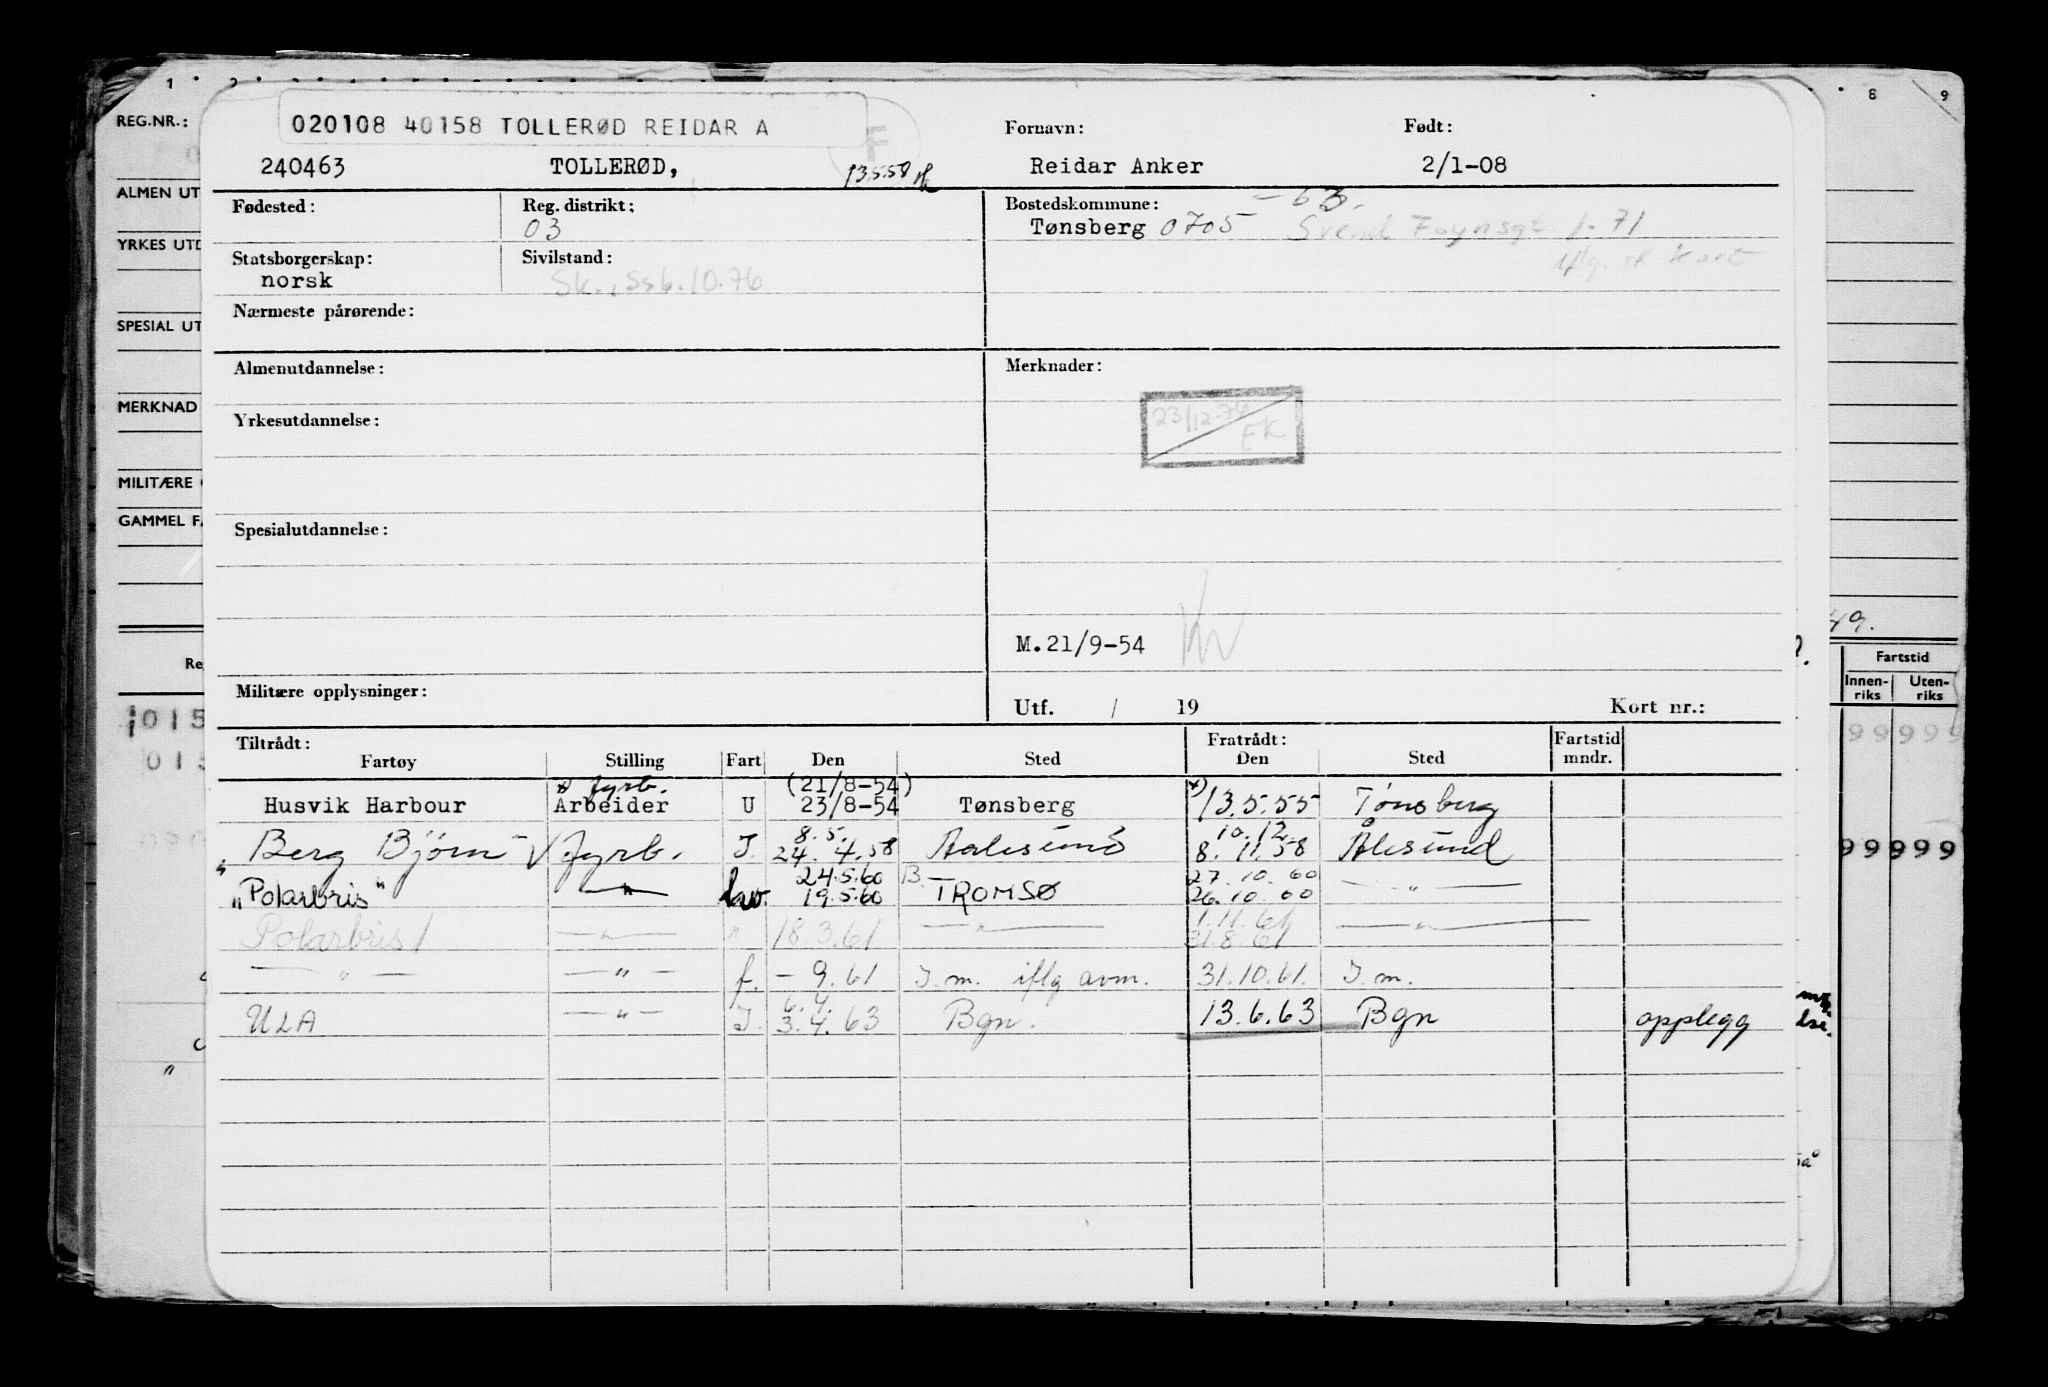 1 2 8 9
REG.NR.:
020108 40158 TOLLERØD REIDAR A
F
Fornavn: Født:
240463 TOLLERØD, 13.5.58 Reidar Anker 2/1-08
ALMEN UT
Fødested: Reg. distrikt: Bostedskommune: - 63.
03 Tønsberg 0705 Svend Foynsgt. 71
YRKES UTD
Statsborgerskap: Sivilstand: iflg. sk kort
norsk Sk., ssb. 10.76
Nærmeste pårørende:
SPESIAL UT
Almenutdannelse: Merknader:
MERKNAD
23/12-76
EK
Yrkesutdannelse:
MILITÆRE
GAMMEL F
Spesialutdannelse:
49.
M. 21/9-54
Fartstid
Innen-riks Uten-riks
Militære opplysninger:
Utf. / 19 Kort nr.:
015 99999
Tiltrådt: Fratrådt: Fartstid mndr.
Fartøy Stilling Fart Den Sted Den Sted
x) fyrb. (21/8-54) x)
Husvik Harbour Arbeider U 23/8-54 Tønsberg 13.5.55 Tønsberg
8.5. 10.12
" Berg Bjørn - √ fyrb. I. 24.4.58 Aalesund 8.11.58 Ålesund
99999
24.5.60 B. 27.10.60
"Polarbris" — " — 19.5.60 TROMSØ 26.10.60 — " —
1.11.61
Polarbris — " — " 18.3.61 — " — 31.8.61 — " —
— " — — " — f. - 9.61 I.m. iflg avm. 31.10.61. I.m.
6.4.
ULA — " — I. 3.4.63 Bgn. 13.6.63 Bgn opplegg